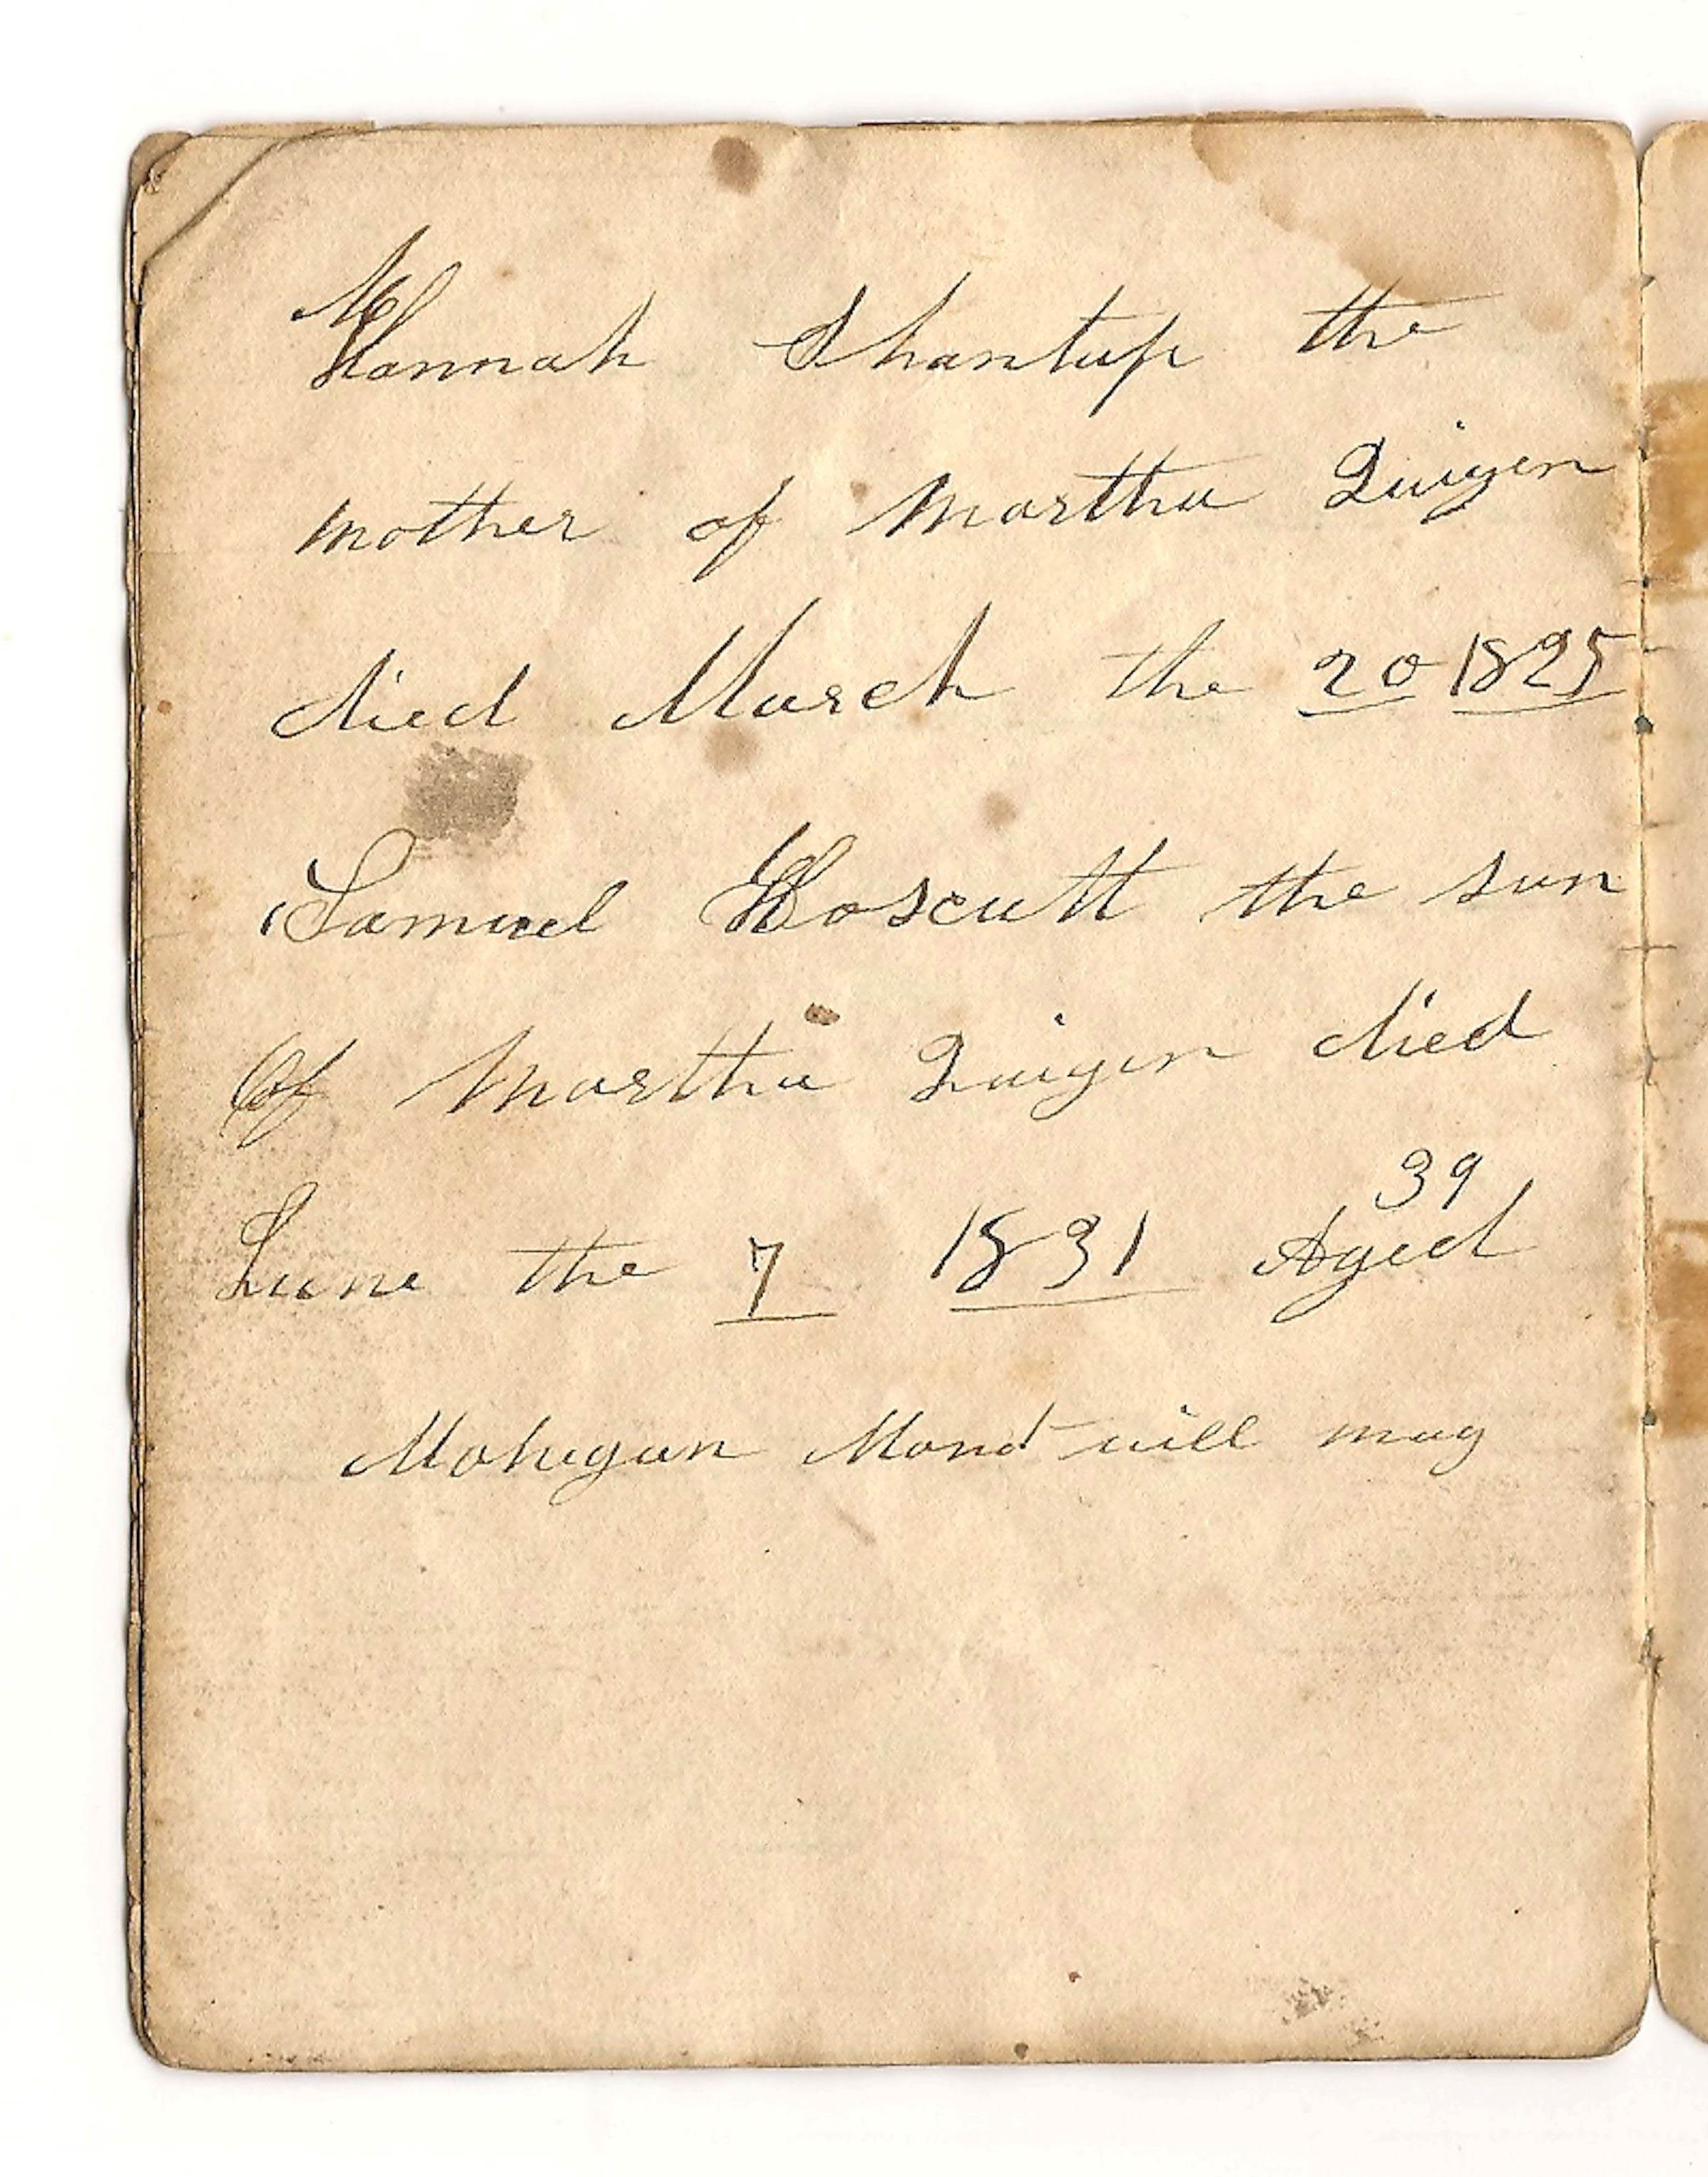 Hannah Shantup the
mother of Martha Quigen
died March the 20 1825
Samuel Hoscutt the sun
Of Martha Quigen died
39
June the 7 1831 Aged
Mohegan Mond vill mag